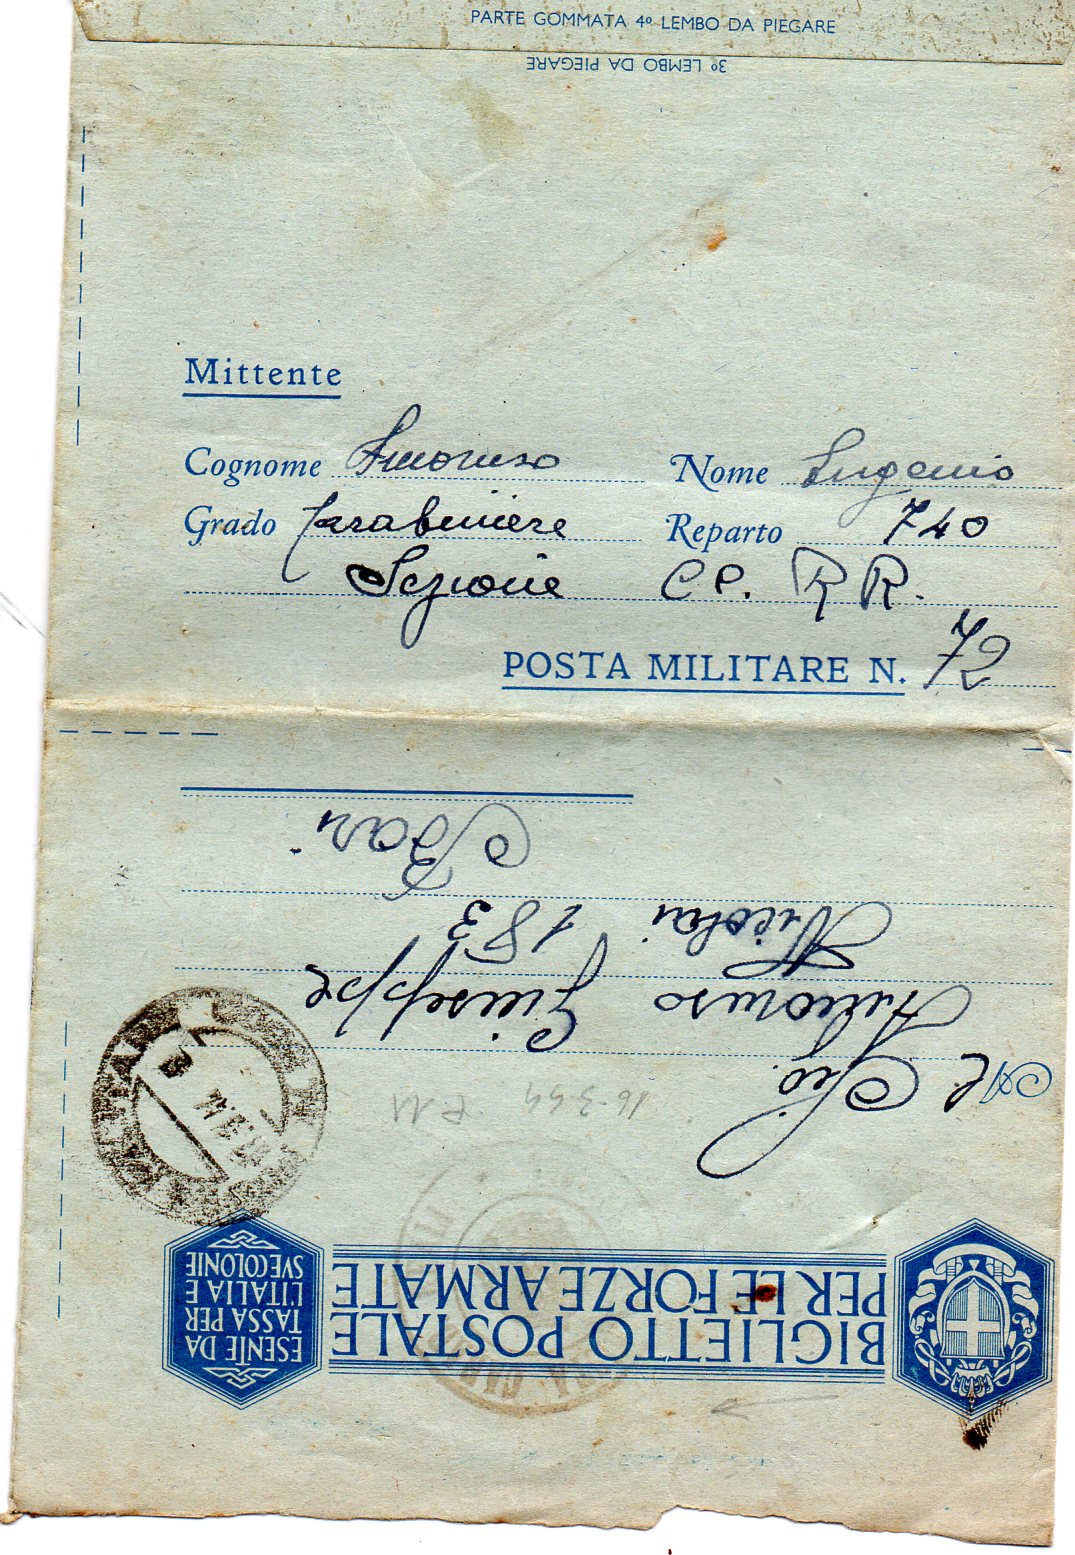 PARTE GOMMATA 4º LEMBO DA PIEGARE
3º LEMBO DA PIEGARE
Mittente
Cognome Amoruso Nome Eugenio
Grado Carabiniere Reparto 740
Sezione CC. RR.
POSTA MILITARE N. 72
BIGLIETTO POSTALE
PER LE FORZE ARMATE
ESENTE DA
TASSA PER
L'ITALIA E
SVE COLONIE
16-3-44
Al Sig.
Amoruso Giuseppe
Nicolai 183
Bari